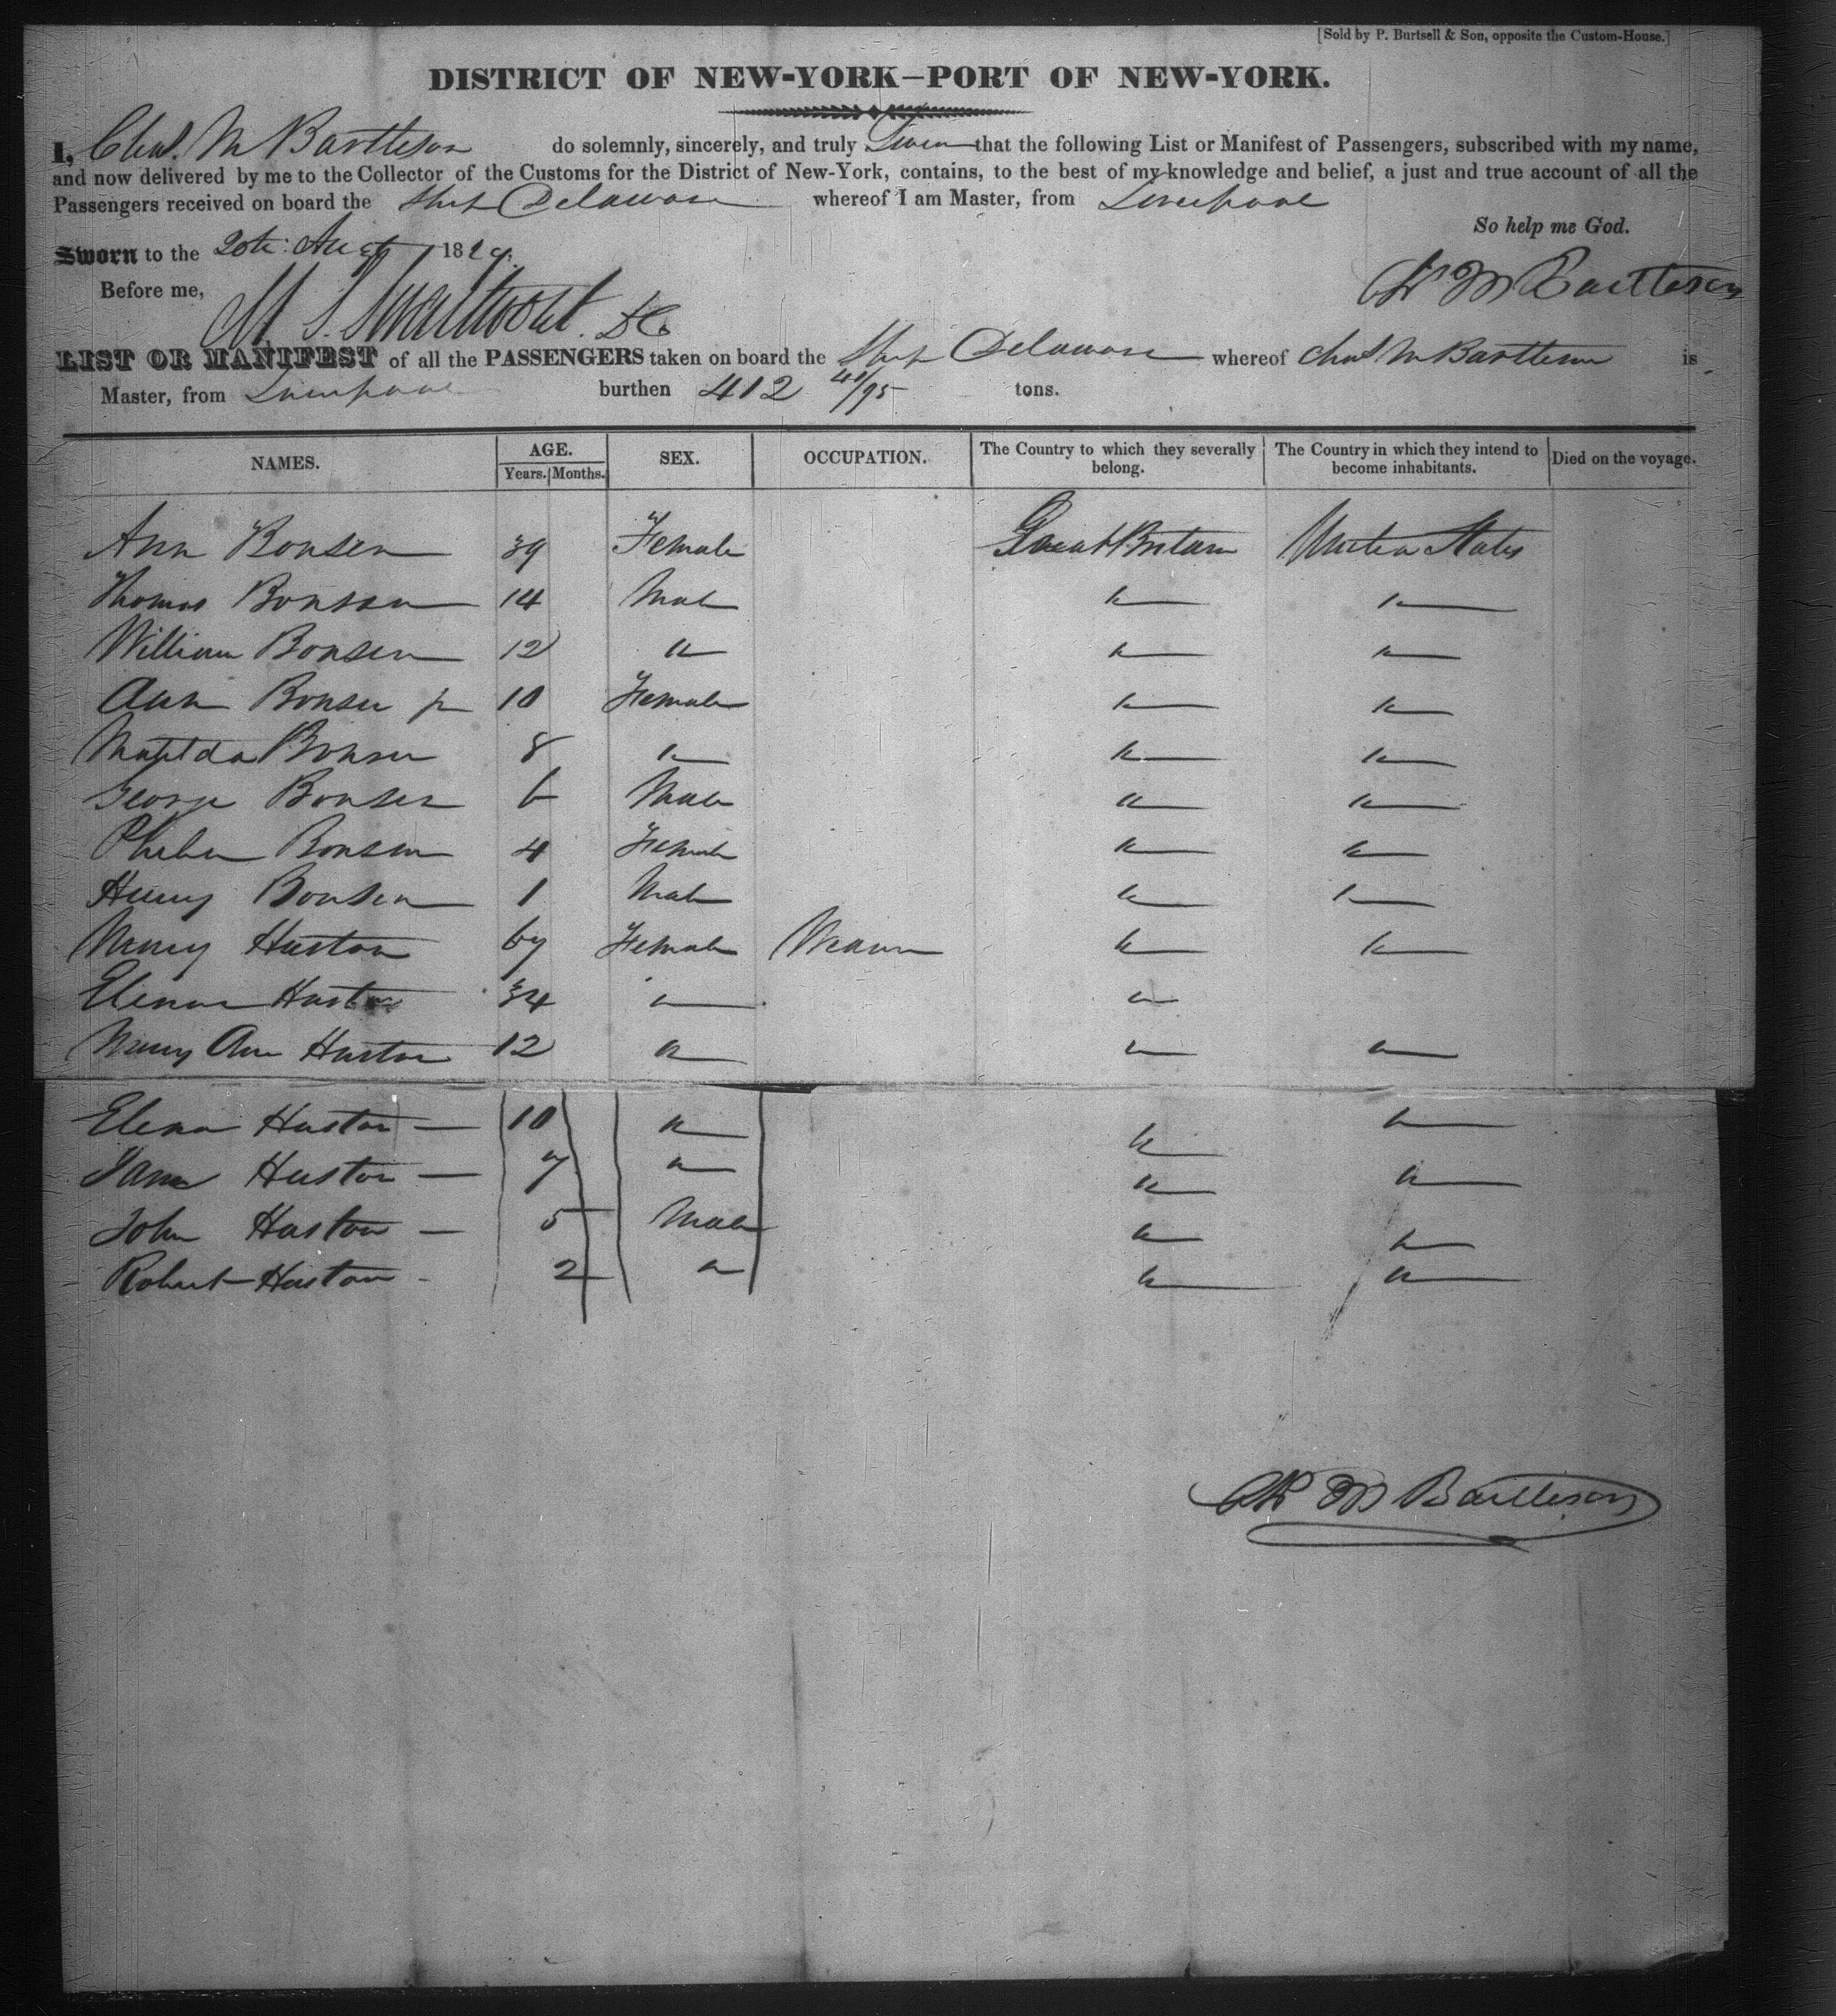 [Sold by P. Burtsell & Son, opposite the Custom-House.]
DISTRICT OF NEW-YORK—PORT OF NEW-YORK.
I, Chas. M Bartleson do solemnly, sincerely, and truly Swear that the following List or Manifest of Passengers, subscribed with my name,
and now delivered by me to the Collector of the Customs for the District of New-York, contains, to the best of my knowledge and belief, a just and true account of all the
Passengers received on board the Ship Delaware whereof I am Master, from Liverpool
So help me God.
Sworn to the 20th Augt 1829.
Before me,
M S. Swartwout
Ch M Bartleson
LIST OR MANIFEST of all the PASSENGERS taken on board the Ship Delaware whereof Chas M Bartleson is
Master, from Liverpool burthen 412 41/95 tons.
NAMES. AGE. SEX. OCCUPATION. The Country to which they severally belong. The Country in which they intend to become inhabitants. Died on the voyage.
Years. Months.
Ann Bonser 39 Female Great Britain United States
Thomas Bonser 14 Male " "
William Bonser 12 " " "
Ann Bonser jr 10 Female " "
Matilda Bonser 8 " " "
George Bonser 6 Male " "
Phebe Bonser 4 Female " "
Henry Bonser 1 Male " "
Nancy Huston 67 Female " "
Elenor Huston 34 " "
Nancy Ann Huston 12 " " "
Elenor Huston 10 " " "
Jane Huston 7 " " "
John Huston 5 Male " "
Robert Huston 2 " " "
Ch M Bartleson